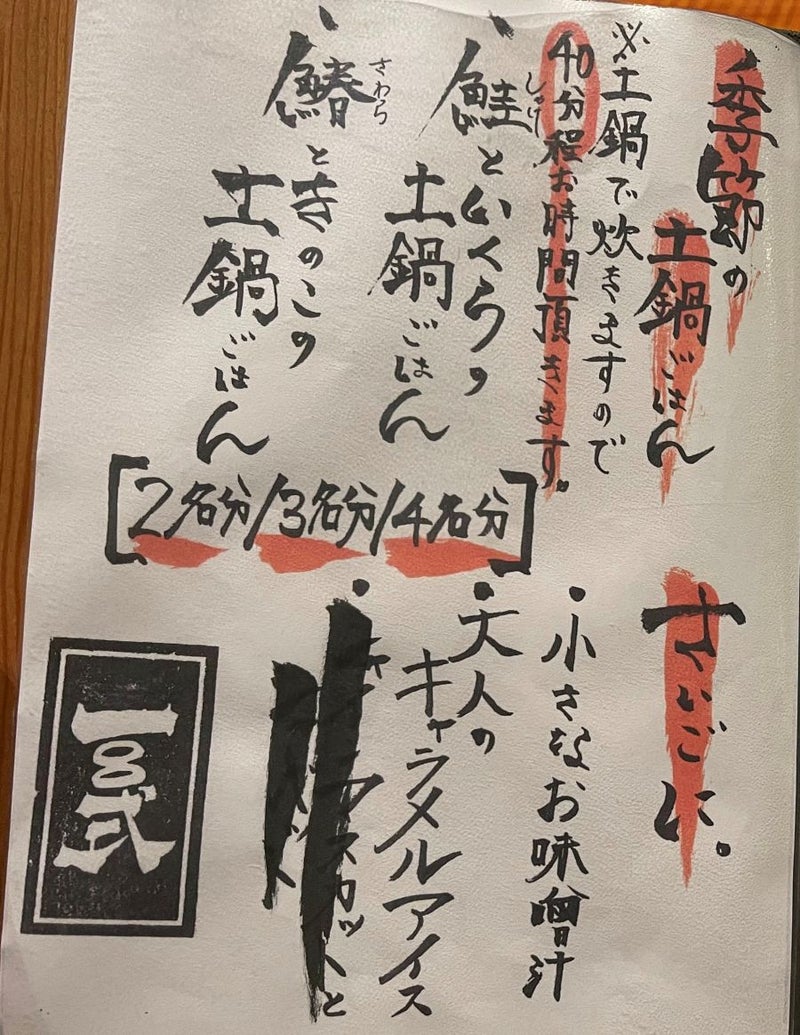 季節の
土鍋ごはん
※土鍋で炊きますので
40分程お時間頂きます。
・鮭といくらの
しゃけ
土鍋ごはん
・鰆ときのこの
さわら
土鍋ごはん
[2名分/3名分/4名分]
さいごに。
・小さなお味噌汁
・大人の
キャラメルアイス